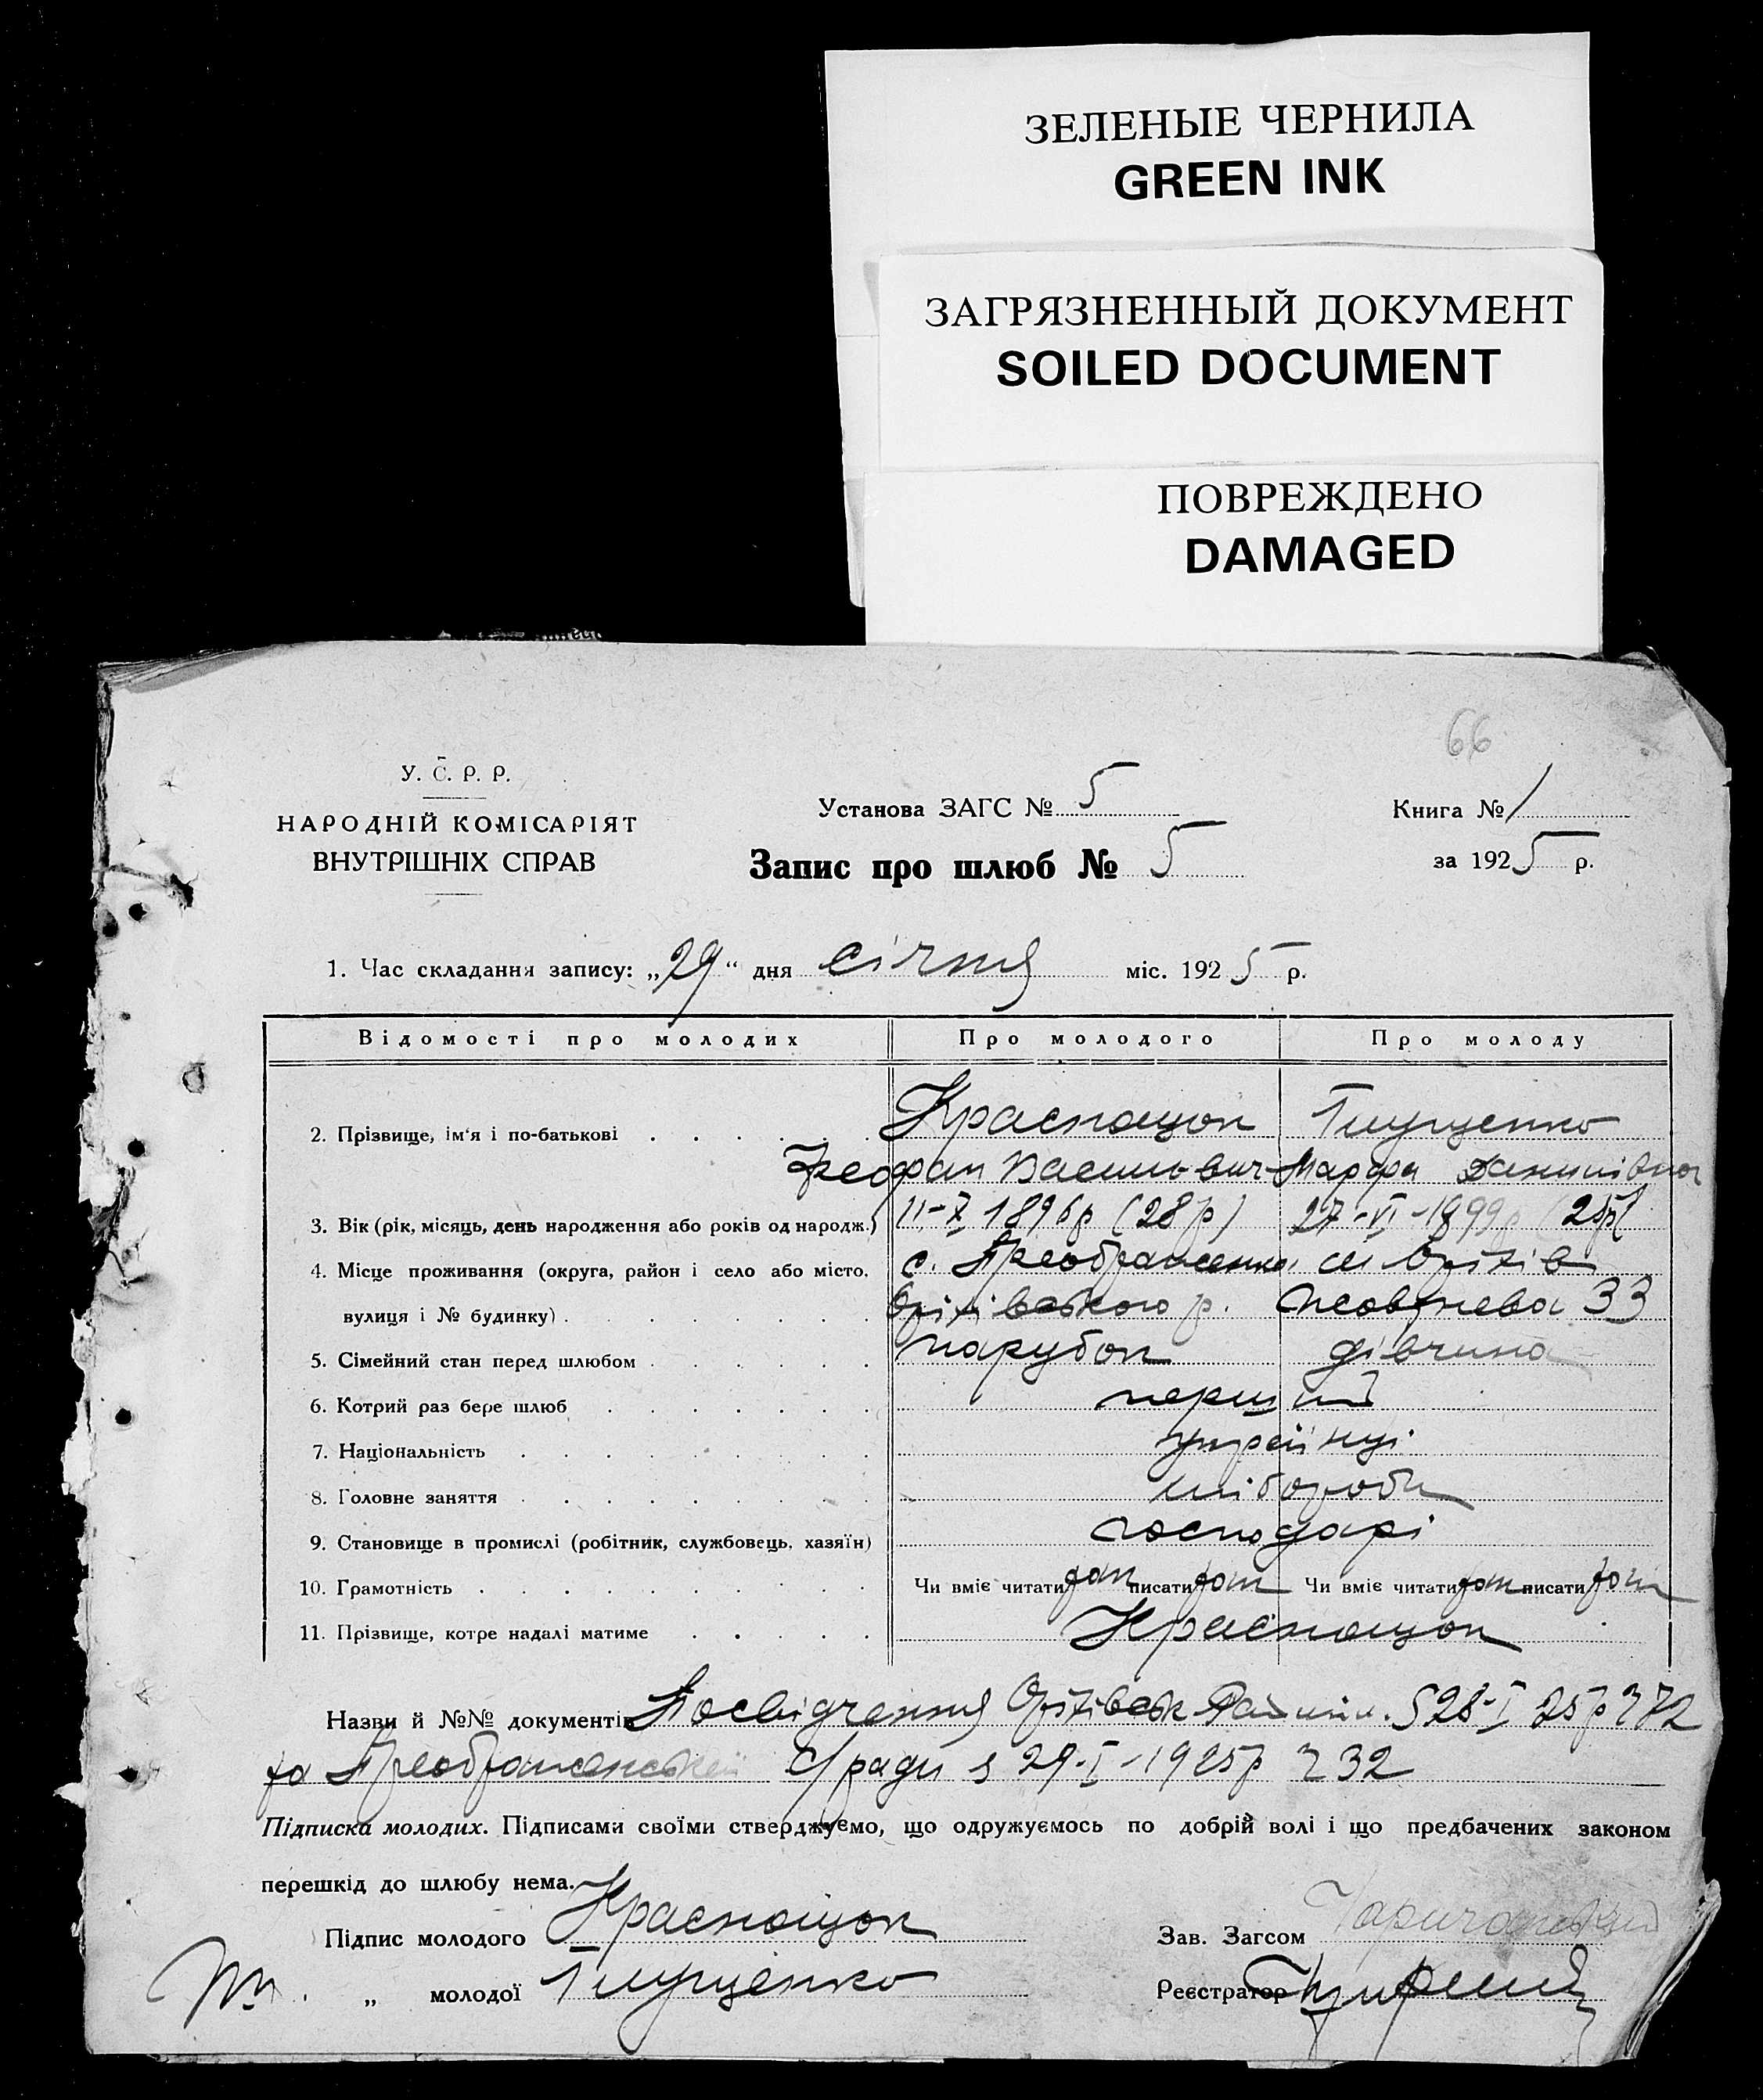 ЗЕЛЕНЫЕ ЧЕРНИЛА
GREEN INK
ЗАГРЯЗНЕННЫЙ ДОКУМЕНТ
SOILED DOCUMENT
ПОВРЕЖДЕНО
DAMAGED
66
У. С. Р. Р.
НАРОДНІЙ КОМІСАРІЯТ
ВНУТРІШНІХ СПРАВ
Установа ЗАГС № 5
Запис про шлюб № 5
Книга № 1
за 1925 р.
1. Час складання запису: „29“ дня січня міс. 1925 р.
Відомості про молодих Про молодого Про молоду
2. Прізвище, ім'я і по-батькові Краснощок Глущенко
Феофан Васильович Марфа Данилівна
3. Вік (рік, місяць, день народження або років од народж.) 11-X 1896р (28р) 27-VI-1899р (25р)
4. Місце проживання (округа, район і село або місто, с. Преображенка, м Оріхів
вулиця і № будинку) Оріхівського р. Жовтнева 33
5. Сімейний стан перед шлюбом парубок дівчина
6. Котрий раз бере шлюб перший
7. Національність українці
8. Головне заняття хлібороби
9. Становище в промислі (робітник, службовець, хазяїн) господарі
10. Грамотність Чи вміє читати так писати так Чи вміє читати так писати так
11. Прізвище, котре надалі матиме Краснощок
Назви й №№ документів Посвідчення Оріхівськ Рай 28-I 25р 372
та Преображенської с/ради з 29-I-1925р 232
Підписка молодих. Підписами своїми стверджуємо, що одружуємось по добрій волі і що предбачених законом
перешкід до шлюбу нема.
Підпис молодого Краснощок
Зав. Загсом
„ молодої Глущенко
Реєстратор